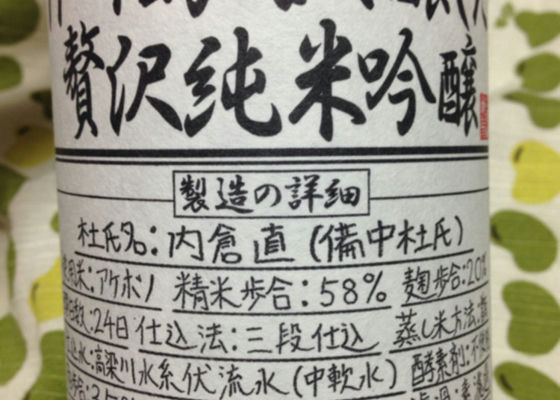 贅沢純米吟醸
製造の詳細
杜氏名:内倉直(備中杜氏)
使用米:アケボノ 精米歩合:58% 麹歩合:20%
数:24日 仕込法:三段仕込 蒸し米方法:
水:高梁川水系伏流水(中軟水) 酵素剤:不使
歩合:35